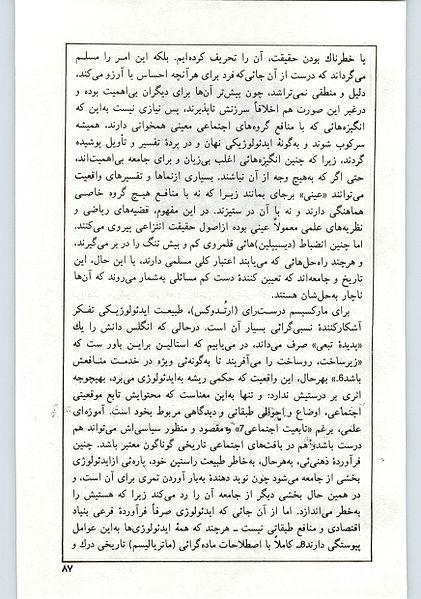 یا خطرناك بودن حقیقت، آن را تحریف کرده‌ایم. بلکه این امر را مسلم
می‌گرداند که درست از آن جائی‌که فرد برای هرآنچه احساس یا آرزو می‌کند،
دلیل و منطقی نمی‌تراشد، چون بیش‌تر آن‌ها برای دیگران بی‌اهمیت بوده و
درغیر این صورت هم اخلاقاً سرزنش ناپذیرند، پس نیازی نیست به‌این که
انگیزه‌هائی که با منافع گروه‌های اجتماعی معینی همخوانی دارند، همیشه
سرکوب شوند و به‌گونهٔ ایدئولوژیکی نهان و در پردهٔ تفسیر و تأویل پوشیده
گردند، زیرا که چنین انگیزه‌هائی اغلب بی‌زیان و برای جامعه بی‌اهمیت‌اند،
حتی اگر که به‌هیچ وجه از آن نباشند. بسیاری ازنماها و تفسیرهای واقعیت
می‌توانند «عینی» برجای بمانند زیرا که نه با منافع هیچ گروه خاصی
هماهنگی دارند و نه با آن در ستیزند. در این مفهوم، قضیه‌های ریاضی و
نظریه‌های علمی معمولاً عینی بوده ازاصول حقیقت انتزاعی پیروی می‌کنند.
اما چنین انضباط (دیسیپلین)هائی قلمروی کم و بیش تنگ را در بر می‌گیرند،
و هرچند راه‌حل‌هائی که می‌یابند اعتبار کلی مسلمی دارند، با این حال، این
تاریخ و جامعه‌اند که تعیین کنندهٔ دست کم مسائلی به‌شمار می‌روند که آن‌ها
ناچار به‌حل‌شان هستند.
برای مارکسیسم درست‌رای (ارتُدوکس)، طبیعت ایدئولوژیکی تفکر
آشکارکنندهٔ نسبی‌گرائی بسیار آن است. درحالی که انگلس دانش را یك
«پدیدهٔ تبعی» صرف می‌داند، در می‌یابیم که استالین براین باور ست که
«زیرساخت، روساخت را می‌آفریند تا به‌گونه‌ئی ویژه در خدمت منافعش
باشد6.» بهرحال، این واقعیت که حکمی ریشه به‌ایدئولوژی می‌برد، بهیچوجه
اثری بر درستیش ندارد: و تنها به‌این معناست که محتوایش تابع موقعیتی
اجتماعی، اوضاع و احوالی طبقاتی و دیدگاهی مربوط بخود است. آموزه‌ای
علمی، برغم «تابعیت اجتماعی7» و مقصود و منظور سیاسی‌اش می‌تواند هم
درست باشد و هم در بافت‌های اجتماعی تاریخی گوناگون معتبر باشد. چنین
فرآوردهٔ ذهنی‌ئی، به‌هرحال، به‌خاطر طبیعت راستین خود، پاره‌ئی ازایدئولوژی
بخشی از جامعه می‌شود چون نوید دهندهٔ به‌بار آوردن ثمری برای آن است، و
در همین حال بخشی دیگر از جامعه آن را رد می‌کند زیرا که هستیش را
به‌خطر می‌اندازد. اما از آن جائی که ایدئولوژی صرفاً فرآوردهٔ فرعی بنیاد
اقتصادی و منافع طبقاتی نیست ـ هرچند که همهٔ ایدئولوژی‌ها به‌این عوامل
پیوستگی دارند8ـ کاملاً با اصطلاحات ماده‌گرائی (ماتریالیسم) تاریخی درك و
۸۷